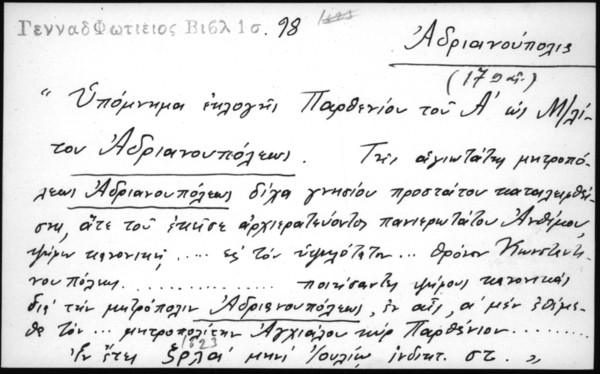 ΓενναδΦωτιειος Βιβλ 1σ. 98
Ἀδριανούπολις
(17 )
" Ὑπόμνημα ἐκλογῆς Παρθενίου τοῦ Α' ὡς Μ/λί-
του Ἀδριανουπόλεως. Τῆς ἁγιωτάτης μητροπό-
λεως Ἀδριανουπόλεως δίχα γνησίου προστάτου καταλειφθεί-
σης, ἅτε τοῦ ἐκεῖσε ἀρχιερατεύοντος πανιερωτάτου Ἀνθίμου,
ψήφῳ κανονικῇ .... ἐς τὸν ὑψηλότατον ... θρόνον Κωνσταντι-
νουπόλεως ............... ποιήσαντες ψήφους κανονικὰς
διὰ τὴν μητρόπολιν Ἀδριανουπόλεως, ἐν αἷς, α' μὲν ἐθέμε-
θα τὸν ... μητροπολίτην Ἀγχιάλου κὺρ Παρθένιον ........
Ἐν ἔτει ζρλα' μηνὶ Ἰουλίῳ ἰνδικτ. στ. "
1623